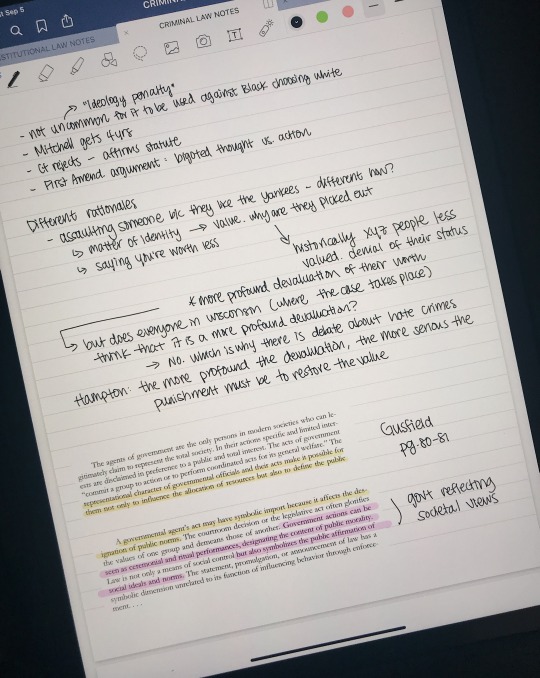 t Sep 5
CRIMIN
STITUTIONAL LAW NOTES
CRIMINAL LAW NOTES
"Ideology penalty"
- not uncommon for it to be used against Black choosing white
- Mitchell gets 4 yrs
- Ct rejects - affirms statute
- First Amend argument: bigoted thought vs. action
Different rationales
- assaulting someone b/c they like the Yankees - different how?
↳ matter of identity → value. why are they picked out
↳ saying you're worth less
historically XYZ people less
valued. denial of their status
* more profound devaluation of their worth
↳ but does everyone in wisconsin (where the case takes place)
think that it is a more profound devaluation?
→ No. which is why there is debate about hate crimes
Hampton: the more profound the devaluation, the more serious the
punishment must be to restore the value
The agents of government are the only persons in modern societies who can le-
gitimately claim to represent the total society. In their actions specific and limited inter-
ests are disclaimed in preference to a public and total interest. The acts of government
"commit a group to action or to perform coordinated acts for its general welfare." The
representational character of governmental officials and their acts make it possible for
them not only to influence the allocation of resources but also to define the public
Gusfield
pg. 80-81
A governmental agent's act may have symbolic import because it affects the des-
ignation of public norms. The courtroom decision or the legislative act often glorifies
the values of one group and demeans those of another. Government actions can be
seen as ceremonial and ritual performances, designating the content of public morality.
Law is not only a means of social control but also symbolizes the public affirmation of
social ideals and norms. The statement, promulgation, or announcement of law has a
symbolic dimension unrelated to its function of influencing behavior through enforce-
ment. . . .
govt reflecting
societal views